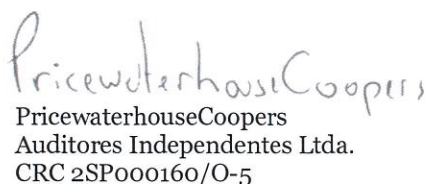 PricewaterhouseCoopers
PricewaterhouseCoopers
Auditores Independentes Ltda.
CRC 2SP000160/O-5